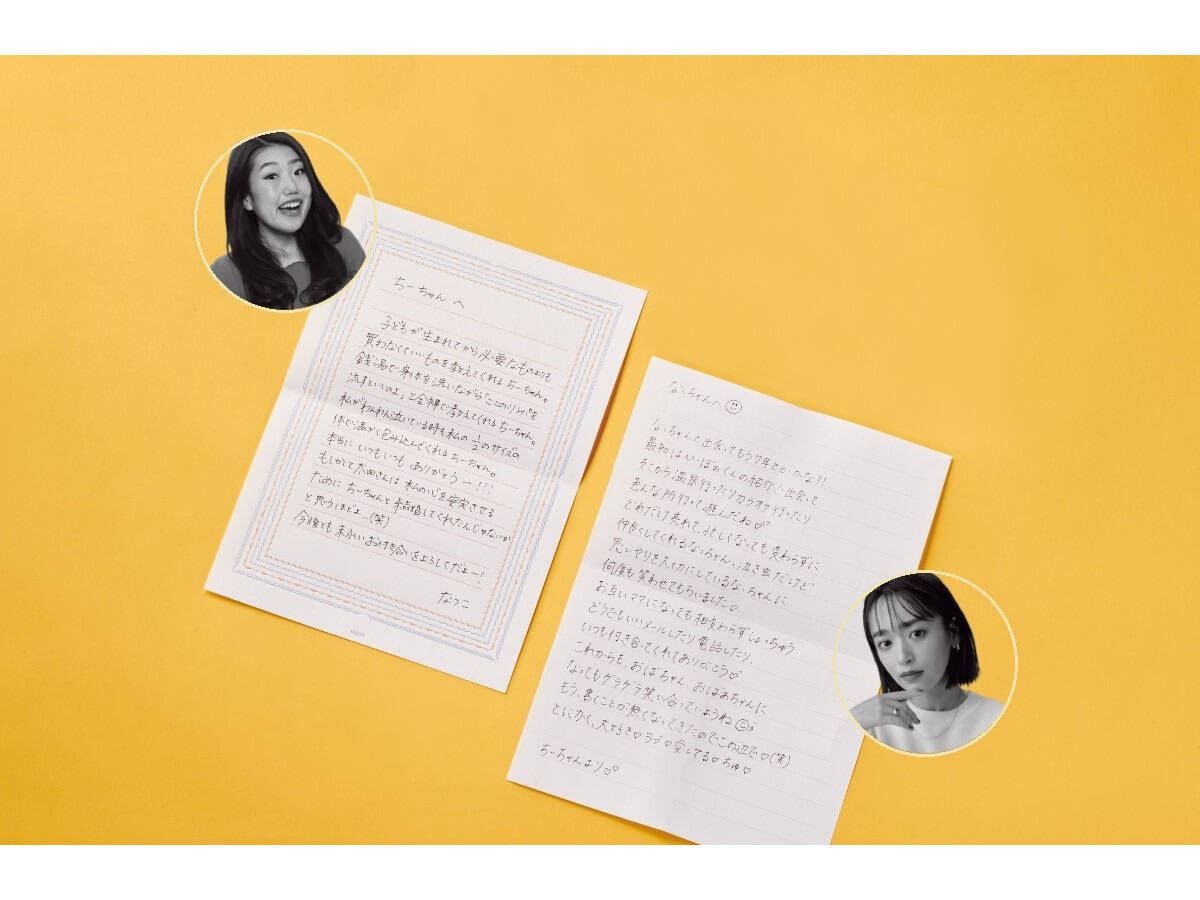 ちーちゃん へ
子どもが生まれてから必要なものよりも
買わなくていいものを教えてくれるちーちゃん。
銭湯で身体を洗いながら「ここのリンパを
流すといいのよ」と全裸で教えてくれるちーちゃん。
私がわんわん泣いている時も私の1/2のサイズの
体で温かく包み込んでくれるちーちゃん。
本当に いつもいつも ありがとうー!!!
もしかして太田さんは 私の心を安定させる
ために ちーちゃんと 結婚してくれたんじゃないか
と思うほどよ…(笑)
今後とも 末永いお付き合いをよろしくだよー!
なつこ
なっちゃんへ☺
なっちゃんと出会ってもう7年とかかな?!
最初はいつぃくんの紹介で出会って
そこから温泉行ったりカラオケ行ったり
色んな所行って遊んだね♡
どれだけ売れて、忙しくなっても変わらずに
仲良くしてくれるなっちゃん、泣き虫だけど
思いやりを大切にしているなっちゃんに
何度も笑わせてもらいました♡
お互いママになっても相変わらずしょっちゅう
どうでもいいメールしたり電話したり、
いつも付き合ってくれてありがとう♡
これからも、おばちゃん、おばあちゃんに
なってもゲラゲラ笑い合っていようね☺
もう、書くことが無くなってきたのでこの辺で♡(笑)
とにかく、大好き♡ラブ♡愛してる♡ちゅ♡
ちーちゃんより♡♡